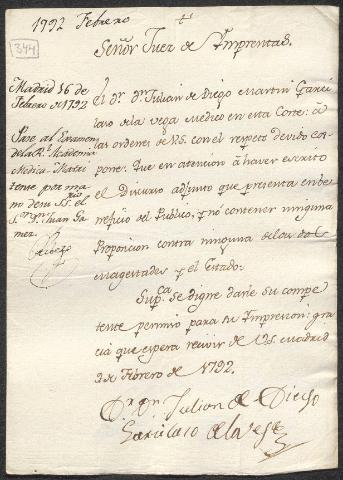 1792 Febrero
344
Señor Juez de Imprentas.
Madrid 16 de
Febrero de 1792
Pase al Examen
de la Rl. Academia
Medica-Matritense
tense por ma
no de su Ss. el
Sr. Dn. Juan Ga
mez.
El Dr. Dn. Julian de Diego Martin Garci
laso de la Vega Medico en esta Corte: á
las ordenes de VS. con el respeto devido ex
pone: Que en atencion á haver escrito
el Discurso adjunto que presenta en be
neficio del Publico, y nó contener ninguna
Proposicion contra ninguna de las dos
magestades y el Estado:
Supca. se digne darle su compe
tente permiso para su Impresion: gra
cia que espera recivir de VS. Madrid
2 de Febrero de 1792.
Dr. Dn. Julian de Diego
Garcilaso de la Vega